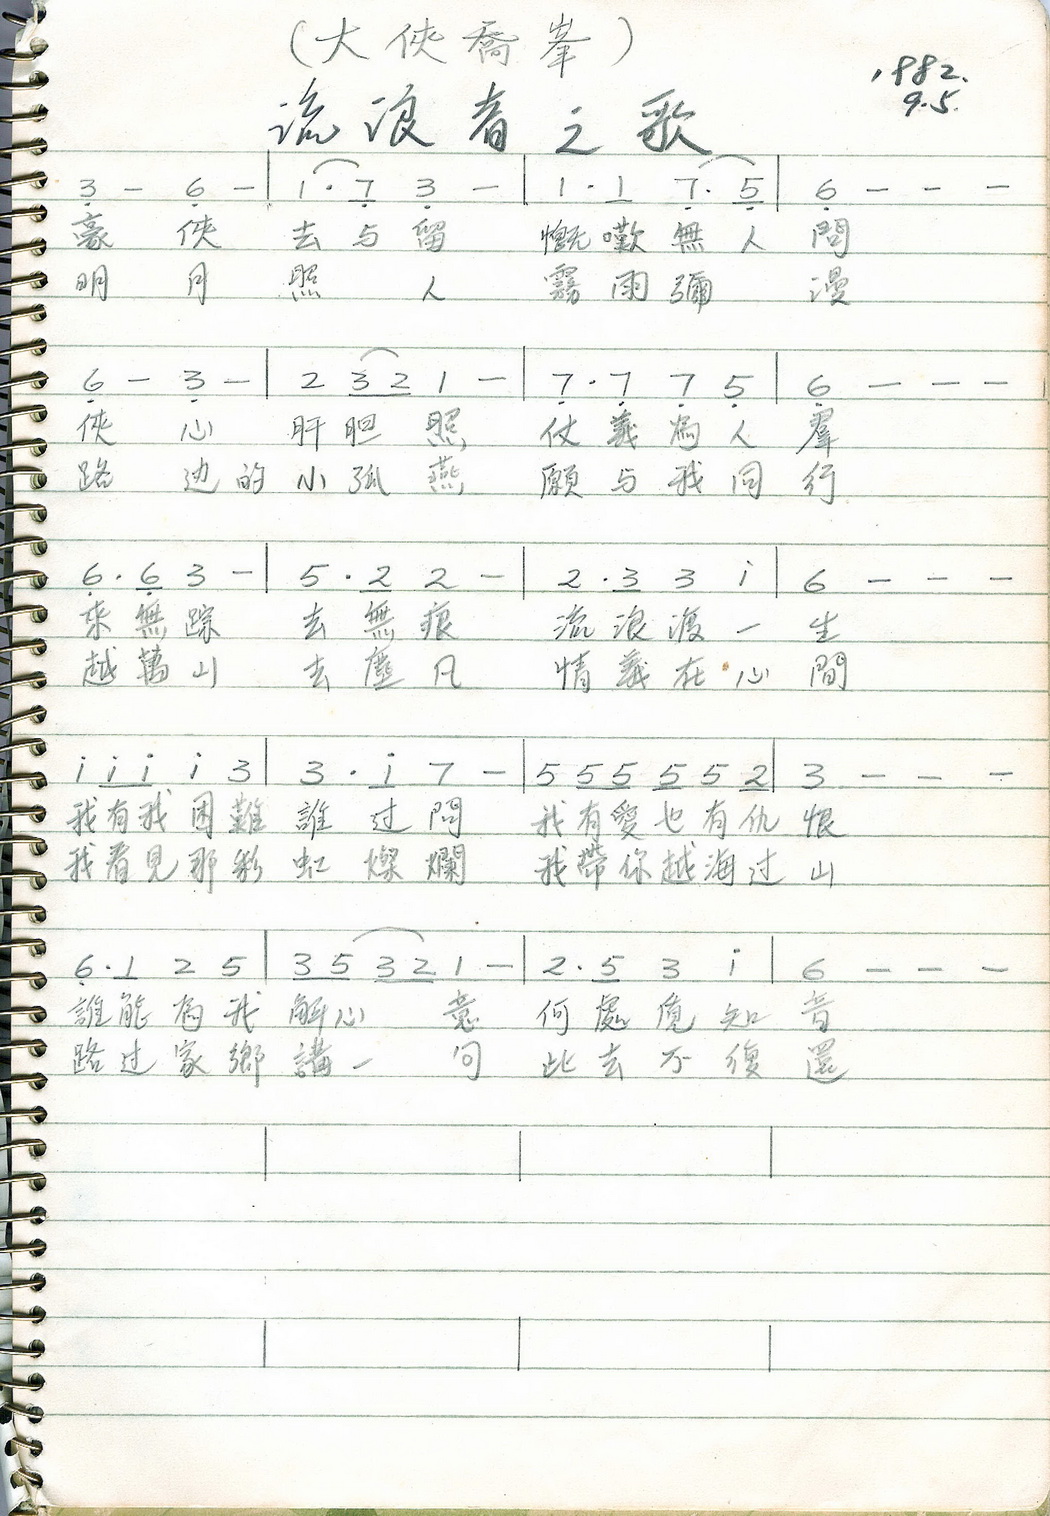 （大俠喬峯）
1982.
9.5.
流浪者之歌
3 - 6 - | 1 · 7 3 - | 1 · 1 7 · 5 | 6 - - -
豪 俠 去 与 留 慨 嘆 無 人 問
明 月 照 人 霧 雨 彌 漫
6 - 3 - | 2 3 2 1 - | 7 · 7 7 5 | 6 - - -
俠 心 肝 胆 照 仗 義 為 人 羣
路 边 的 小 孤 燕 願 与 我 同 行
6 · 6 3 - | 5 · 2 2 - | 2 · 3 3 i | 6 - - -
來 無 踪 去 無 痕 流 浪 渡 一 生
越 萬 山 去 塵 凡 情 義 在 心 間
i i i i 3 | 3 · i 7 - | 5 5 5 5 5 2 | 3 - - -
我 有 我 困 難 誰 过 問 我 有 愛 也 有 仇 恨
我 看 見 那 彩 虹 燦 爛 我 帶 你 越 海 过 山
6 · 1 2 5 | 3 5 3 2 1 - | 2 · 5 3 i | 6 - - -
誰 能 為 我 解 心 意 何 處 覓 知 音
路 过 家 鄉 講 一 句 此 去 不 復 還